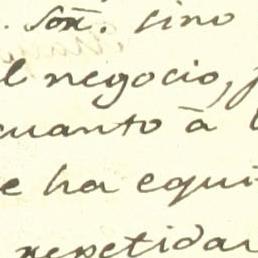 son. sino
negocio,
cuanto à
e ha equi
repetidar